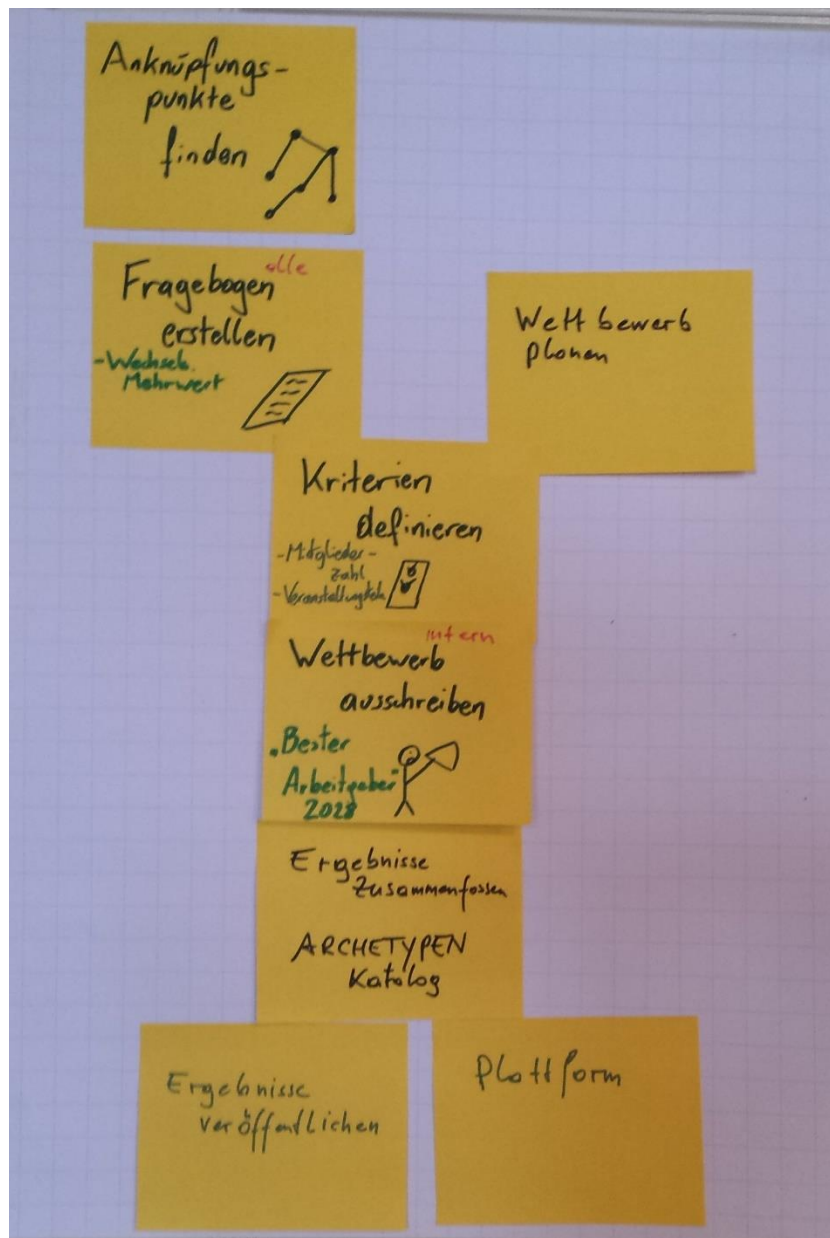 Anknüpfungs-
punkte
finden
alle
Fragebogen
erstellen
-Wechsels.
Mehrwert
Wettbewerb
planen
Kriterien
definieren
-Mitglieder-
zahl
intern
Wettbewerb
ausschreiben
"Bester
Arbeitgeber"
2028
Ergebnisse
zusammenfassen
ARCHETYPEN
Katalog
Ergebnisse
veröffentlichen
Plattform